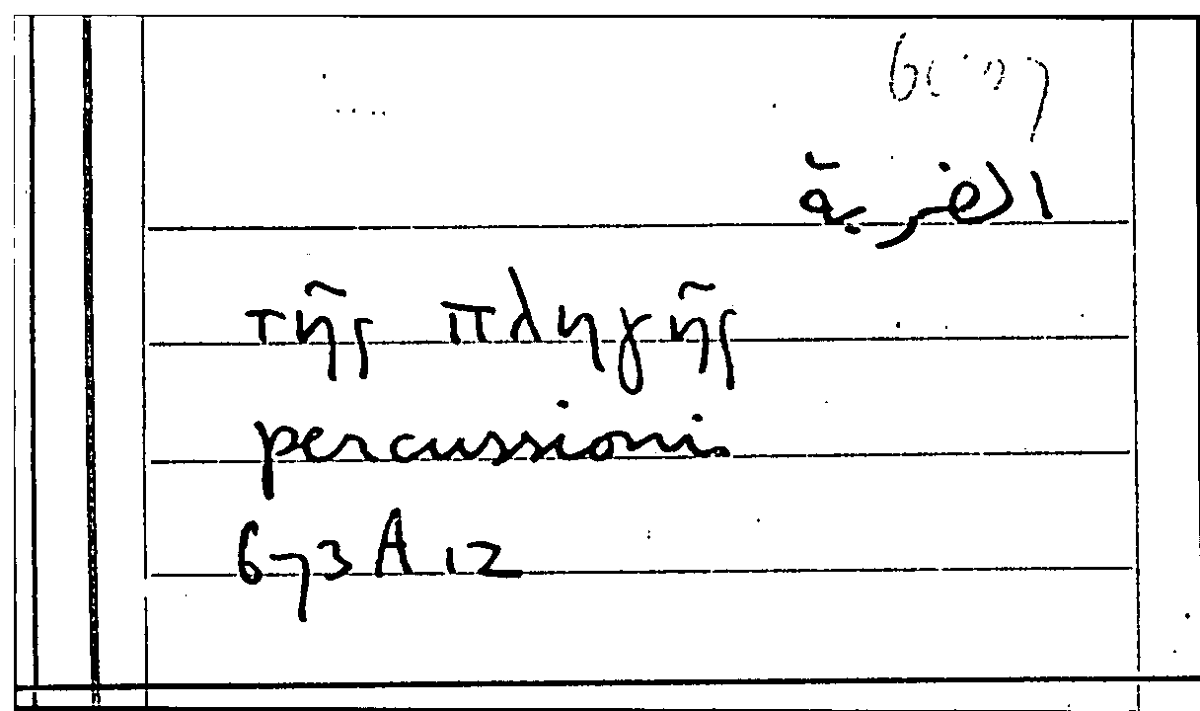 الضربة
τῆς πληγῆς
percussionis
673 A 12